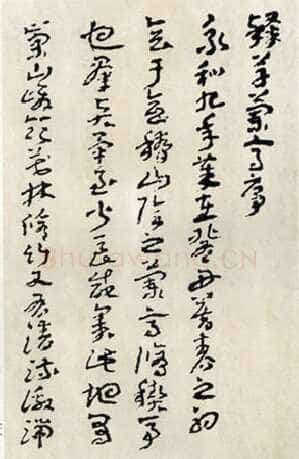 蘭亭序
永和九年歲在癸丑暮春之初
會于會稽山陰之蘭亭脩禊事
也群賢畢至少長咸集此地有
崇山峻領茂林脩竹又有清流激湍